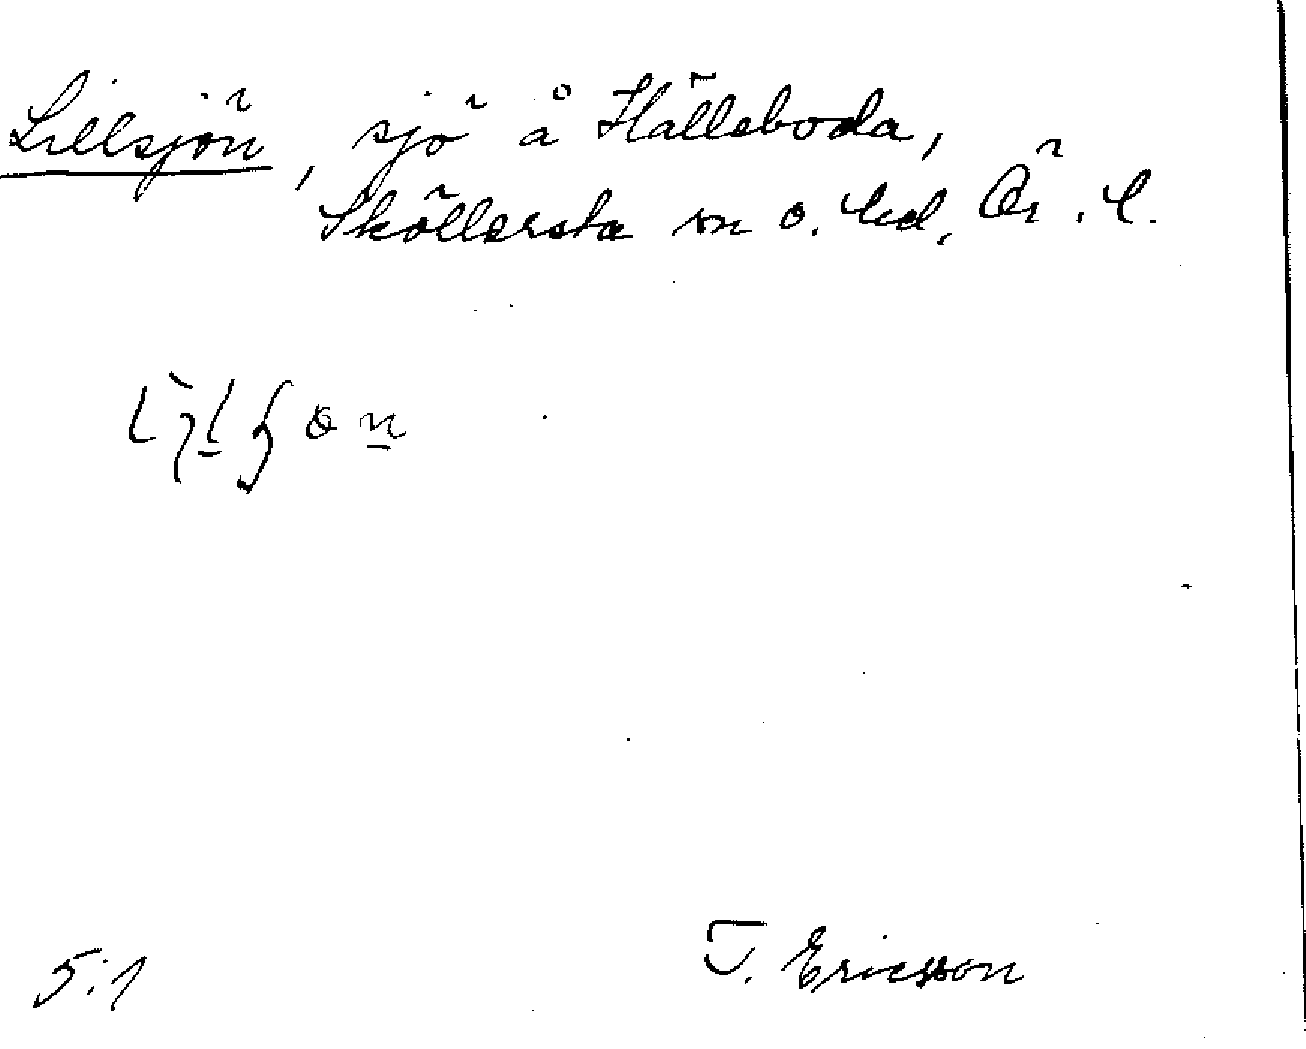 Lillsjön, sjö å Hälleboda,
Sköllersta sn o. hd, Ör. l.
5:1
T. Ericsson